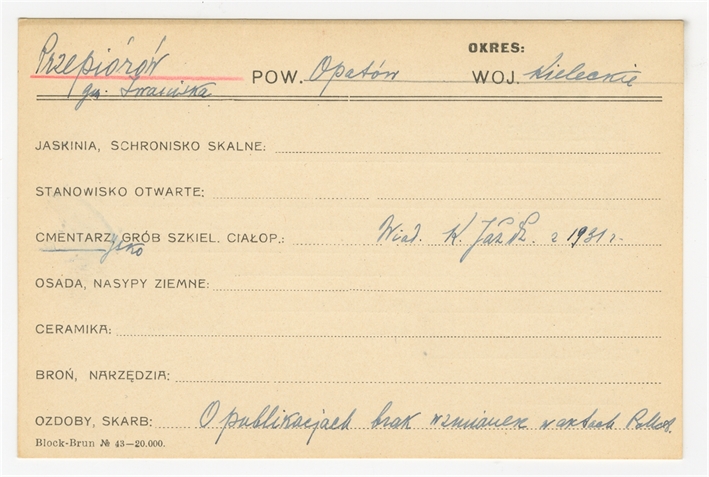 OKRES:
Przepiórów POW. Opatów WOJ. Kieleckie
gm. Iwaniska
JASKINIA, SCHRONISKO SKALNE:
STANOWISKO OTWARTE:
CMENTARZ, GRÓB SZKIEL. CIAŁOP.: Wiad. K. Jażdż. z 1931 r.
ysko
OSADA, NASYPY ZIEMNE:
CERAMIKA:
BROŃ, NARZĘDZIA:
OZDOBY, SKARB: O publikacjach brak wzmianek w aktach
Block-Brun № 43—20.000.